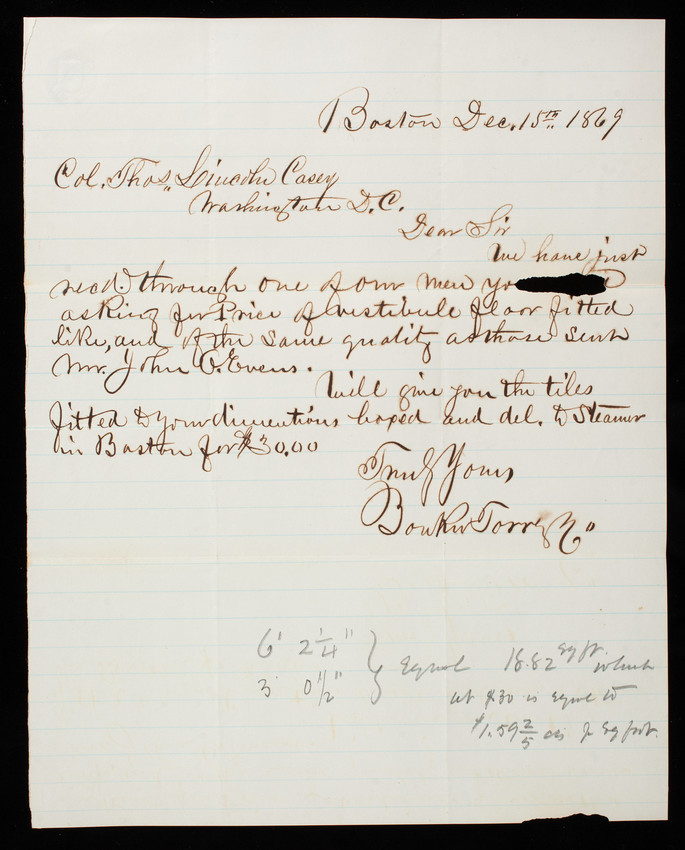 Boston Dec. 15th 1869
Col. Thos. Lincoln Casey
Washington D.C.
Dear Sir
We have just
recd. through one of our men yo
asking for Price of vestibule floor fitted
like, and of the same quality as those sent
Mr. John O. Evens.
Will give you the tiles
fitted to your dimentions boxed and del. to Steamer
in Boston for $30.00
Truly Yours
Bowker Torrey & Co
6' 2 1/4" } Equal 18.82 sq ft. which
3 0 1/2"
at $30 is equal to
$1.59 2/5 cts p sq foot.